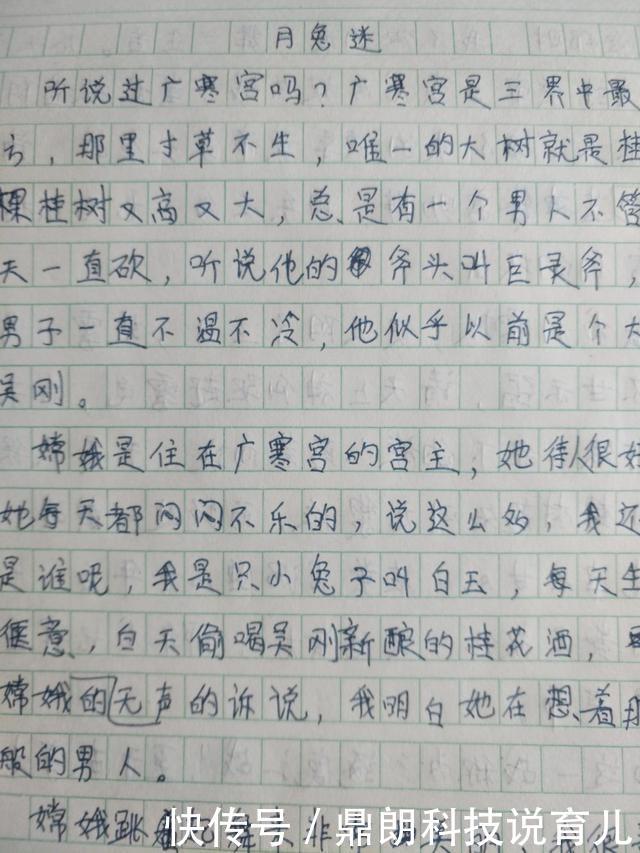 月兔迷
听说过广寒宫吗？广寒宫是三界中最
方，那里寸草不生，唯一的大树就是桂
棵桂树又高又大，总是有一个男人不管
天一直砍，听说他的斧头叫巨灵斧，
男子一直不温不冷，他似乎以前是个大
吴刚。
嫦娥是住在广寒宫的宫主，她待人很好
她每天都闷闷不乐的，说这么多，我还
是谁呢，我是只小兔子叫白玉，每天生
惬意，白天偷喝吴刚新酿的桂花酒，
嫦娥的无声的诉说，我明白她在想着那
般的男人。
嫦娥跳
快传号／鼎朗科技说育儿